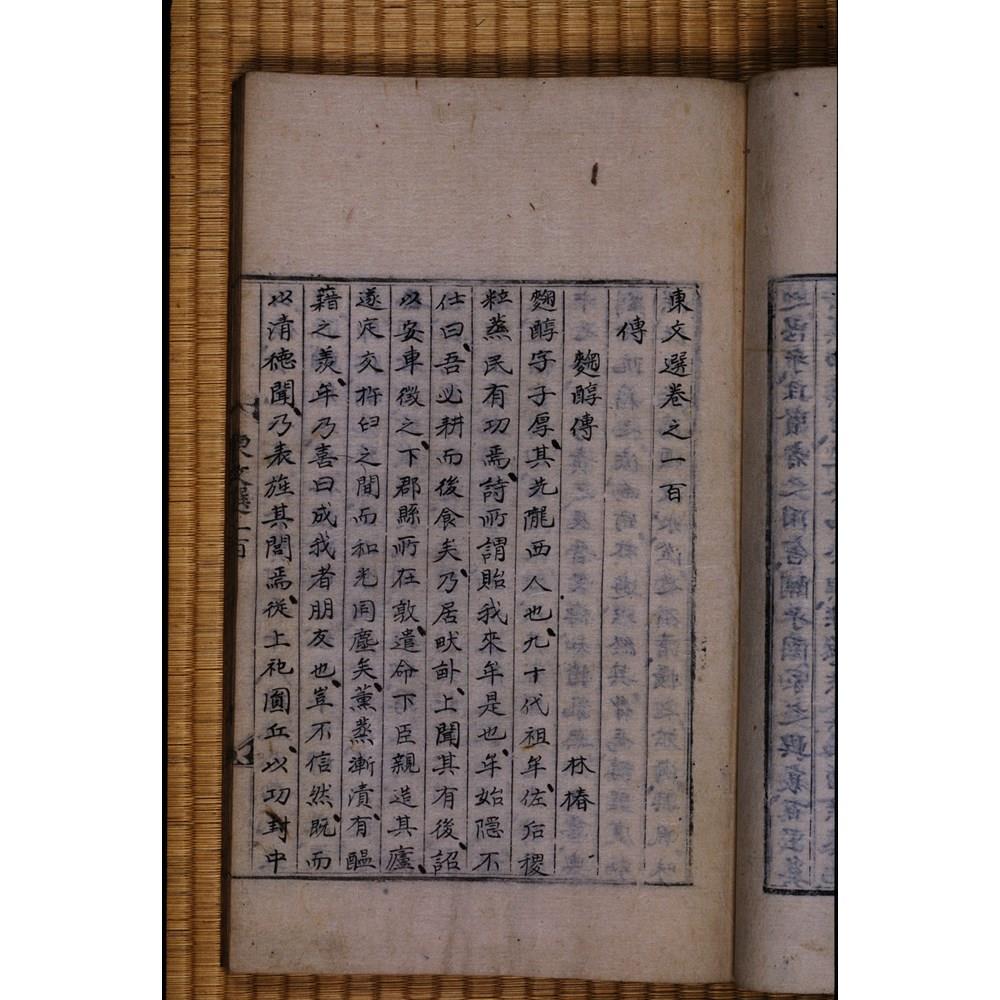 東文選卷之一百
傳
麴醇傳 林椿
麴醇字子厚其先隴西人也九十代祖牟佐后稷
粒蒸民有功焉詩所謂貽我來牟是也牟始隱不
仕曰吾必耕而後食矣乃居畎畝上聞其有後詔
以安車徵之下郡縣所在敦遣命下臣親造其廬
遂定交杵臼之間而和光同塵矣薰蒸漸漬有醞
藉之美牟乃喜曰成我者朋友也豈不信然既而
以淸德聞乃表旌其閭焉從上祀圜丘以功封中
東文選一百